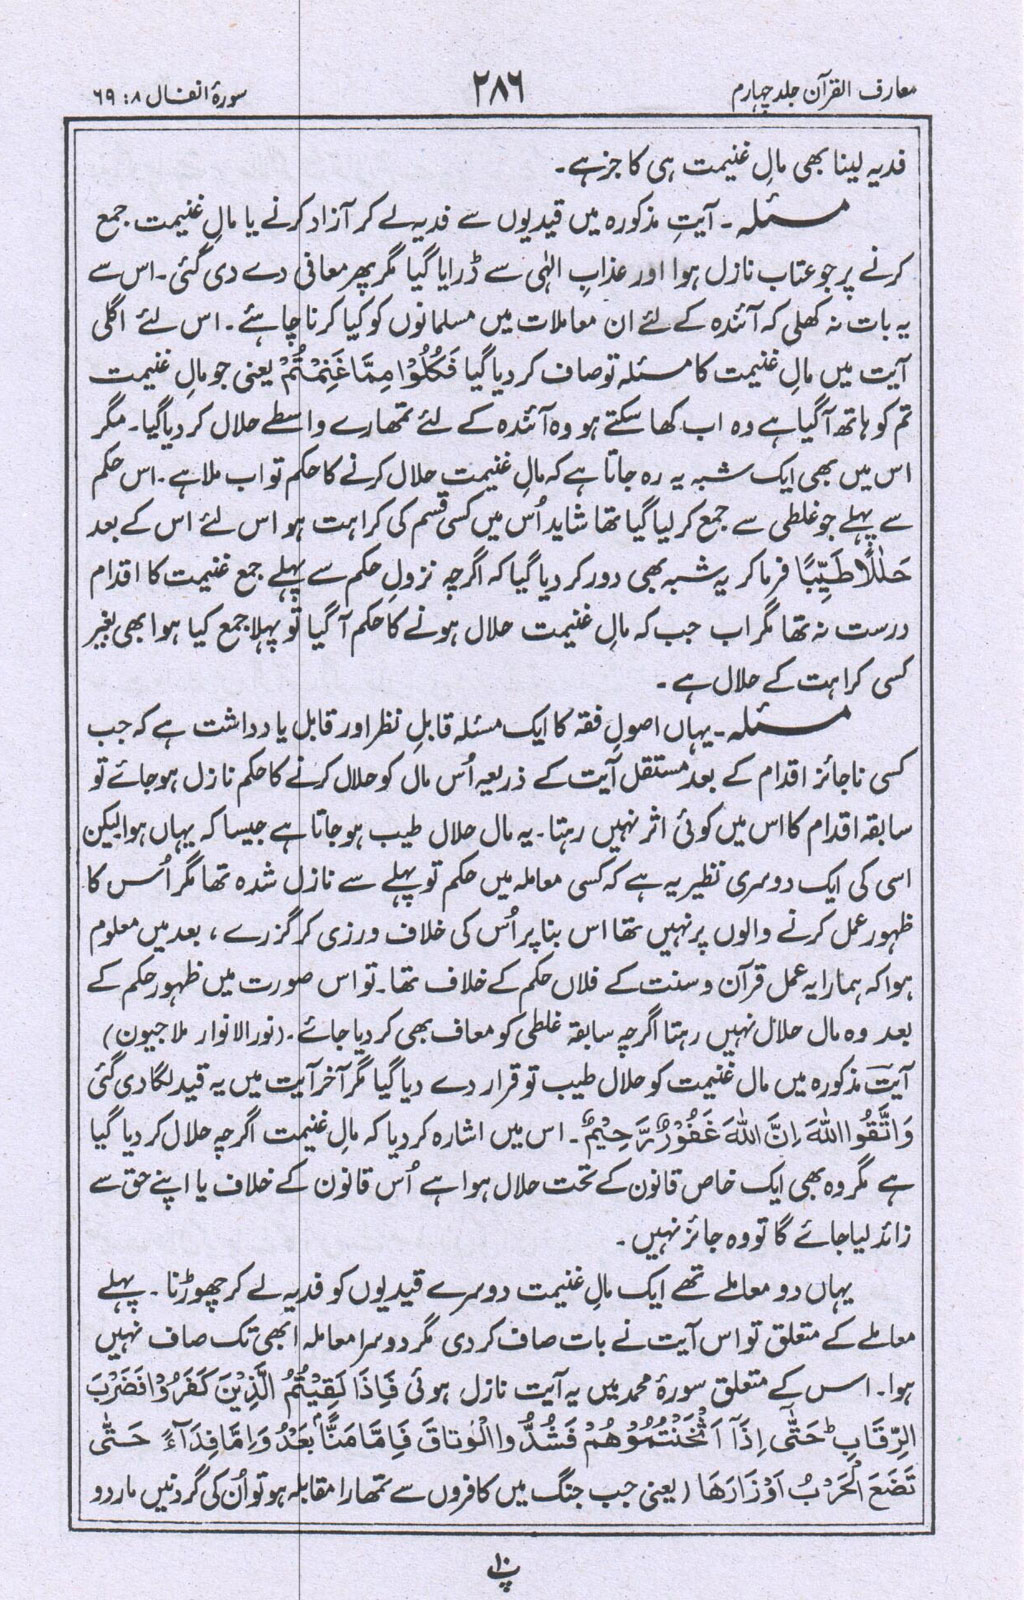 معارف القرآن جلد چہارم ۲۸۶ سورۂ انفال ۸: ۶۹
فدیہ لینا بھی مالِ غنیمت ہی کا جز ہے۔
مسئلہ۔ آیتِ مذکورہ میں قیدیوں سے فدیہ لے کر آزاد کرنے یا مالِ غنیمت جمع
کرنے پر جو عتاب نازل ہوا اور عذابِ الٰہی سے ڈرایا گیا مگر پھر معافی دے دی گئی۔ اس سے
یہ بات نہ کھلی کہ آئندہ کے لئے ان معاملات میں مسلمانوں کو کیا کرنا چاہئے۔ اس لئے اگلی
آیت میں مالِ غنیمت کا مسئلہ تو صاف کر دیا گیا فَكُلُوْا مِمَّا غَنِمْتُمْ یعنی جو مالِ غنیمت
تم کو ہاتھ آگیا ہے وہ اب کھا سکتے ہو وہ آئندہ کے لئے تمھارے واسطے حلال کر دیا گیا۔ مگر
اس میں بھی ایک شبہ یہ رہ جاتا ہے کہ مالِ غنیمت حلال کرنے کا حکم تو اب ملا ہے۔ اس حکم
سے پہلے جو غلطی سے جمع کر لیا گیا تھا شاید اُس میں کسی قسم کی کراہت ہو اس لئے اس کے بعد
حَلٰلًا طَيِّبًا فرما کر یہ شبہ بھی دور کر دیا گیا کہ اگرچہ نزولِ حکم سے پہلے جمع غنیمت کا اقدام
درست نہ تھا مگر اب جب کہ مالِ غنیمت حلال ہونے کا حکم آگیا تو پہلا جمع کیا ہوا بھی بغیر
کسی کراہت کے حلال ہے۔
مسئلہ۔ یہاں اصولِ فقہ کا ایک مسئلہ قابلِ نظر اور قابل یادداشت ہے کہ جب
کسی ناجائز اقدام کے بعد مستقل آیت کے ذریعہ اُس مال کو حلال کرنے کا حکم نازل ہو جائے تو
سابقہ اقدام کا اس میں کوئی اثر نہیں رہتا۔ یہ مال حلال طیب ہو جاتا ہے جیسا کہ یہاں ہوا لیکن
اسی کی ایک دوسری نظیر یہ ہے کہ کسی معاملہ میں حکم تو پہلے سے نازل شدہ تھا مگر اُس کا
ظہور عمل کرنے والوں پر نہیں تھا اس بنا پر اُس کی خلاف ورزی کر گزرے، بعد میں معلوم
ہوا کہ ہمارا یہ عمل قرآن و سنت کے فلاں حکم کے خلاف تھا۔ تو اس صورت میں ظہور حکم کے
بعد وہ مال حلال نہیں رہتا اگرچہ سابقہ غلطی کو معاف بھی کر دیا جائے۔ (نور الانوار ملا جیون)
آیت مذکورہ میں مال غنیمت کو حلال طیب تو قرار دے دیا گیا مگر آخر آیت میں یہ قید لگا دی گئی
وَاتَّقُوا اللهَ اِنَّ اللهَ غَفُوْرٌ رَّحِيْمٌ۔ اس میں اشارہ کر دیا کہ مالِ غنیمت اگرچہ حلال کر دیا گیا
ہے مگر وہ بھی ایک خاص قانون کے تحت حلال ہوا ہے اُس قانون کے خلاف یا اپنے حق سے
زائد لیا جائے گا تو وہ جائز نہیں۔
یہاں دو معاملے تھے ایک مالِ غنیمت دوسرے قیدیوں کو فدیہ لے کر چھوڑنا۔ پہلے
معاملے کے متعلق تو اس آیت نے بات صاف کر دی مگر دوسرا معاملہ ابھی تک صاف نہیں
ہوا۔ اس کے متعلق سورۂ محمد میں یہ آیت نازل ہوئی فَاِذَا لَقِيْتُمُ الَّذِيْنَ كَفَرُوْا فَضَرْبَ
الرِّقَابِ ؕ حَتّٰٓى اِذَآ اَثْخَنْتُمُوْهُمْ فَشُدُّوا الْوَثَاقَ فَاِمَّا مَنًّۢا بَعْدُ وَاِمَّا فِدَآءً حَتّٰى
تَضَعَ الْحَرْبُ اَوْزَارَهَا (یعنی جب جنگ میں کافروں سے تمھارا مقابلہ ہو تو اُن کی گردنیں مار دو
پ۱۰